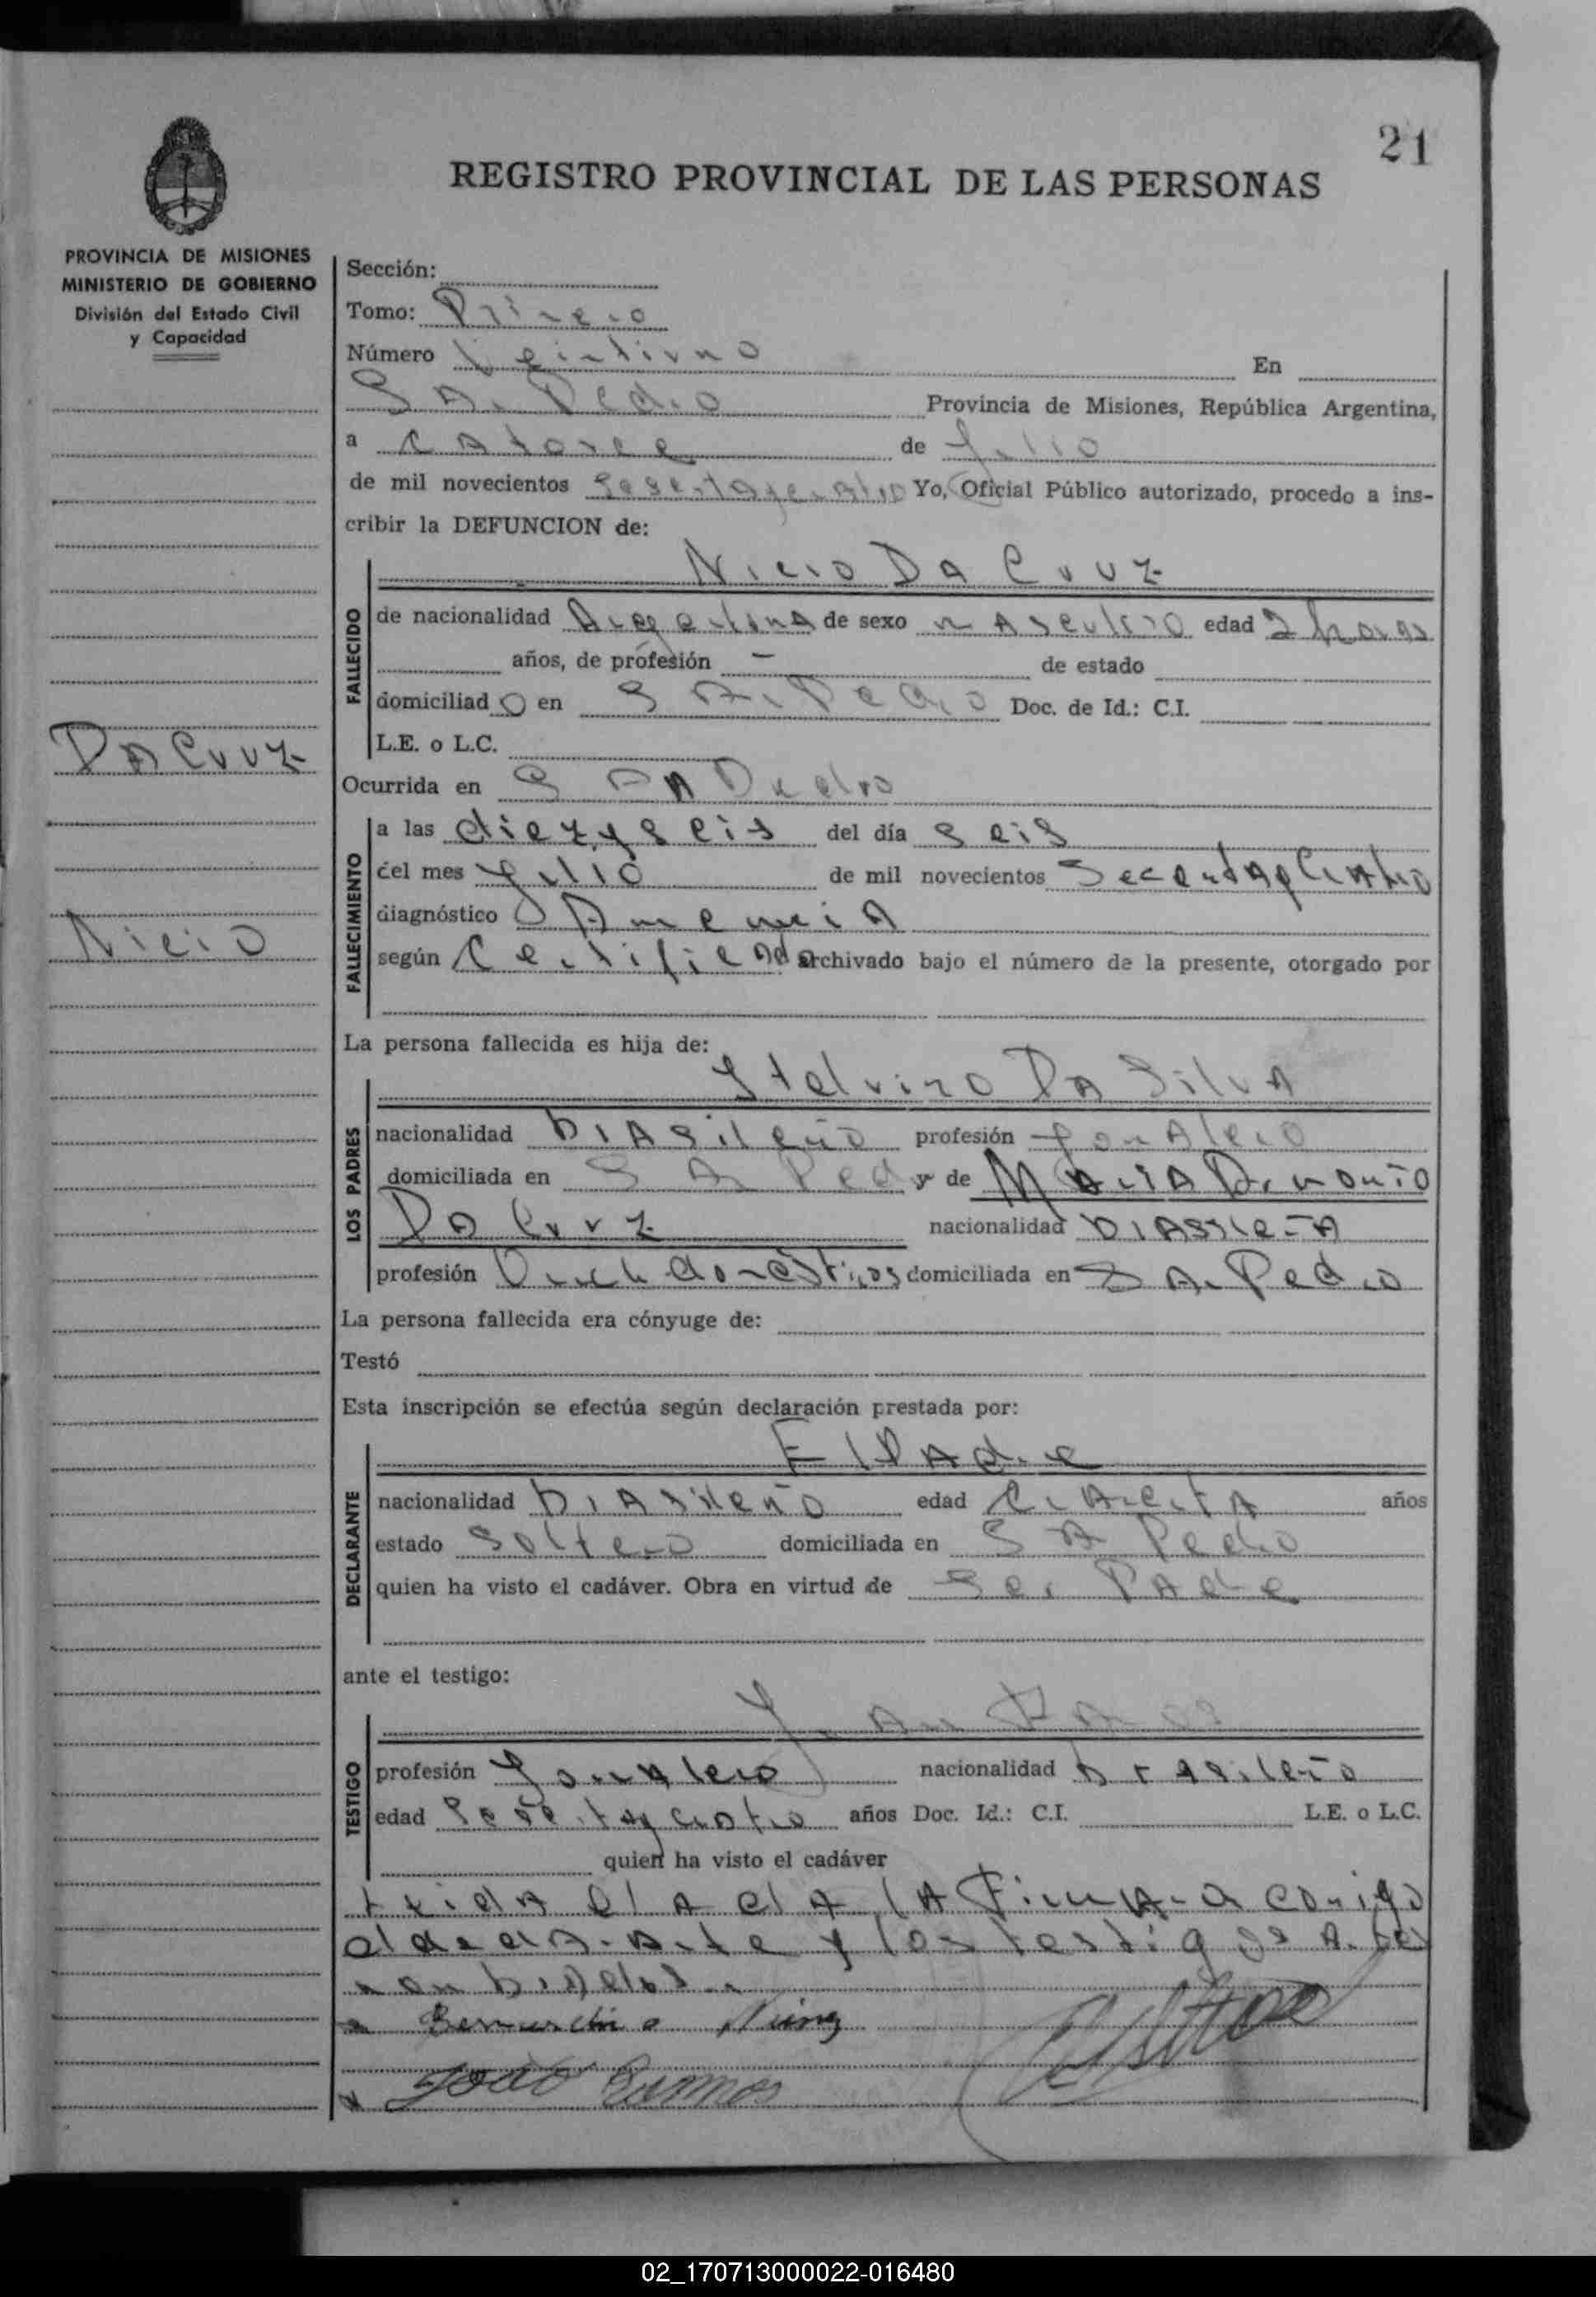 21
REGISTRO PROVINCIAL DE LAS PERSONAS
PROVINCIA DE MISIONES
MINISTERIO DE GOBIERNO
División del Estado Civil
y Capacidad
Da Cruz
Nicio
Sección:
Tomo: Primero
Número Veintiuno En
San Pedro Provincia de Misiones, República Argentina,
a catorce de Julio
de mil novecientos Yo, Oficial Público autorizado, procedo a ins-
cribir la DEFUNCION de:
Nicio Da Cruz
FALLECIDO
de nacionalidad Argentina de sexo masculino edad 2 horas
años, de profesión — de estado
domiciliado en San Pedro Doc. de Id.: C.I.
L.E. o L.C.
Ocurrida en San Pedro
FALLECIMIENTO
a las diez y seis del día seis
del mes Julio de mil novecientos
diagnóstico Anemia
según Certificado archivado bajo el número de la presente, otorgado por
La persona fallecida es hija de:
Stelvino Da Silva
LOS PADRES
nacionalidad brasileño profesión jornalero
domiciliada en San Ped y de Maria
Da Cruz nacionalidad brasileña
profesión domiciliada en San Pedro
La persona fallecida era cónyuge de:
Testó
Esta inscripción se efectúa según declaración prestada por:
El Padre
DECLARANTE
nacionalidad brasileño edad años
estado soltero domiciliada en San Pedro
quien ha visto el cadáver. Obra en virtud de ser Padre
ante el testigo:
TESTIGO
profesión Jornalero nacionalidad brasileño
edad años Doc. Id.: C.I. L.E. o L.C.
quien ha visto el cadáver
el acta la Firman conigo
y los testigos
João Ramos
02_170713000022-016480